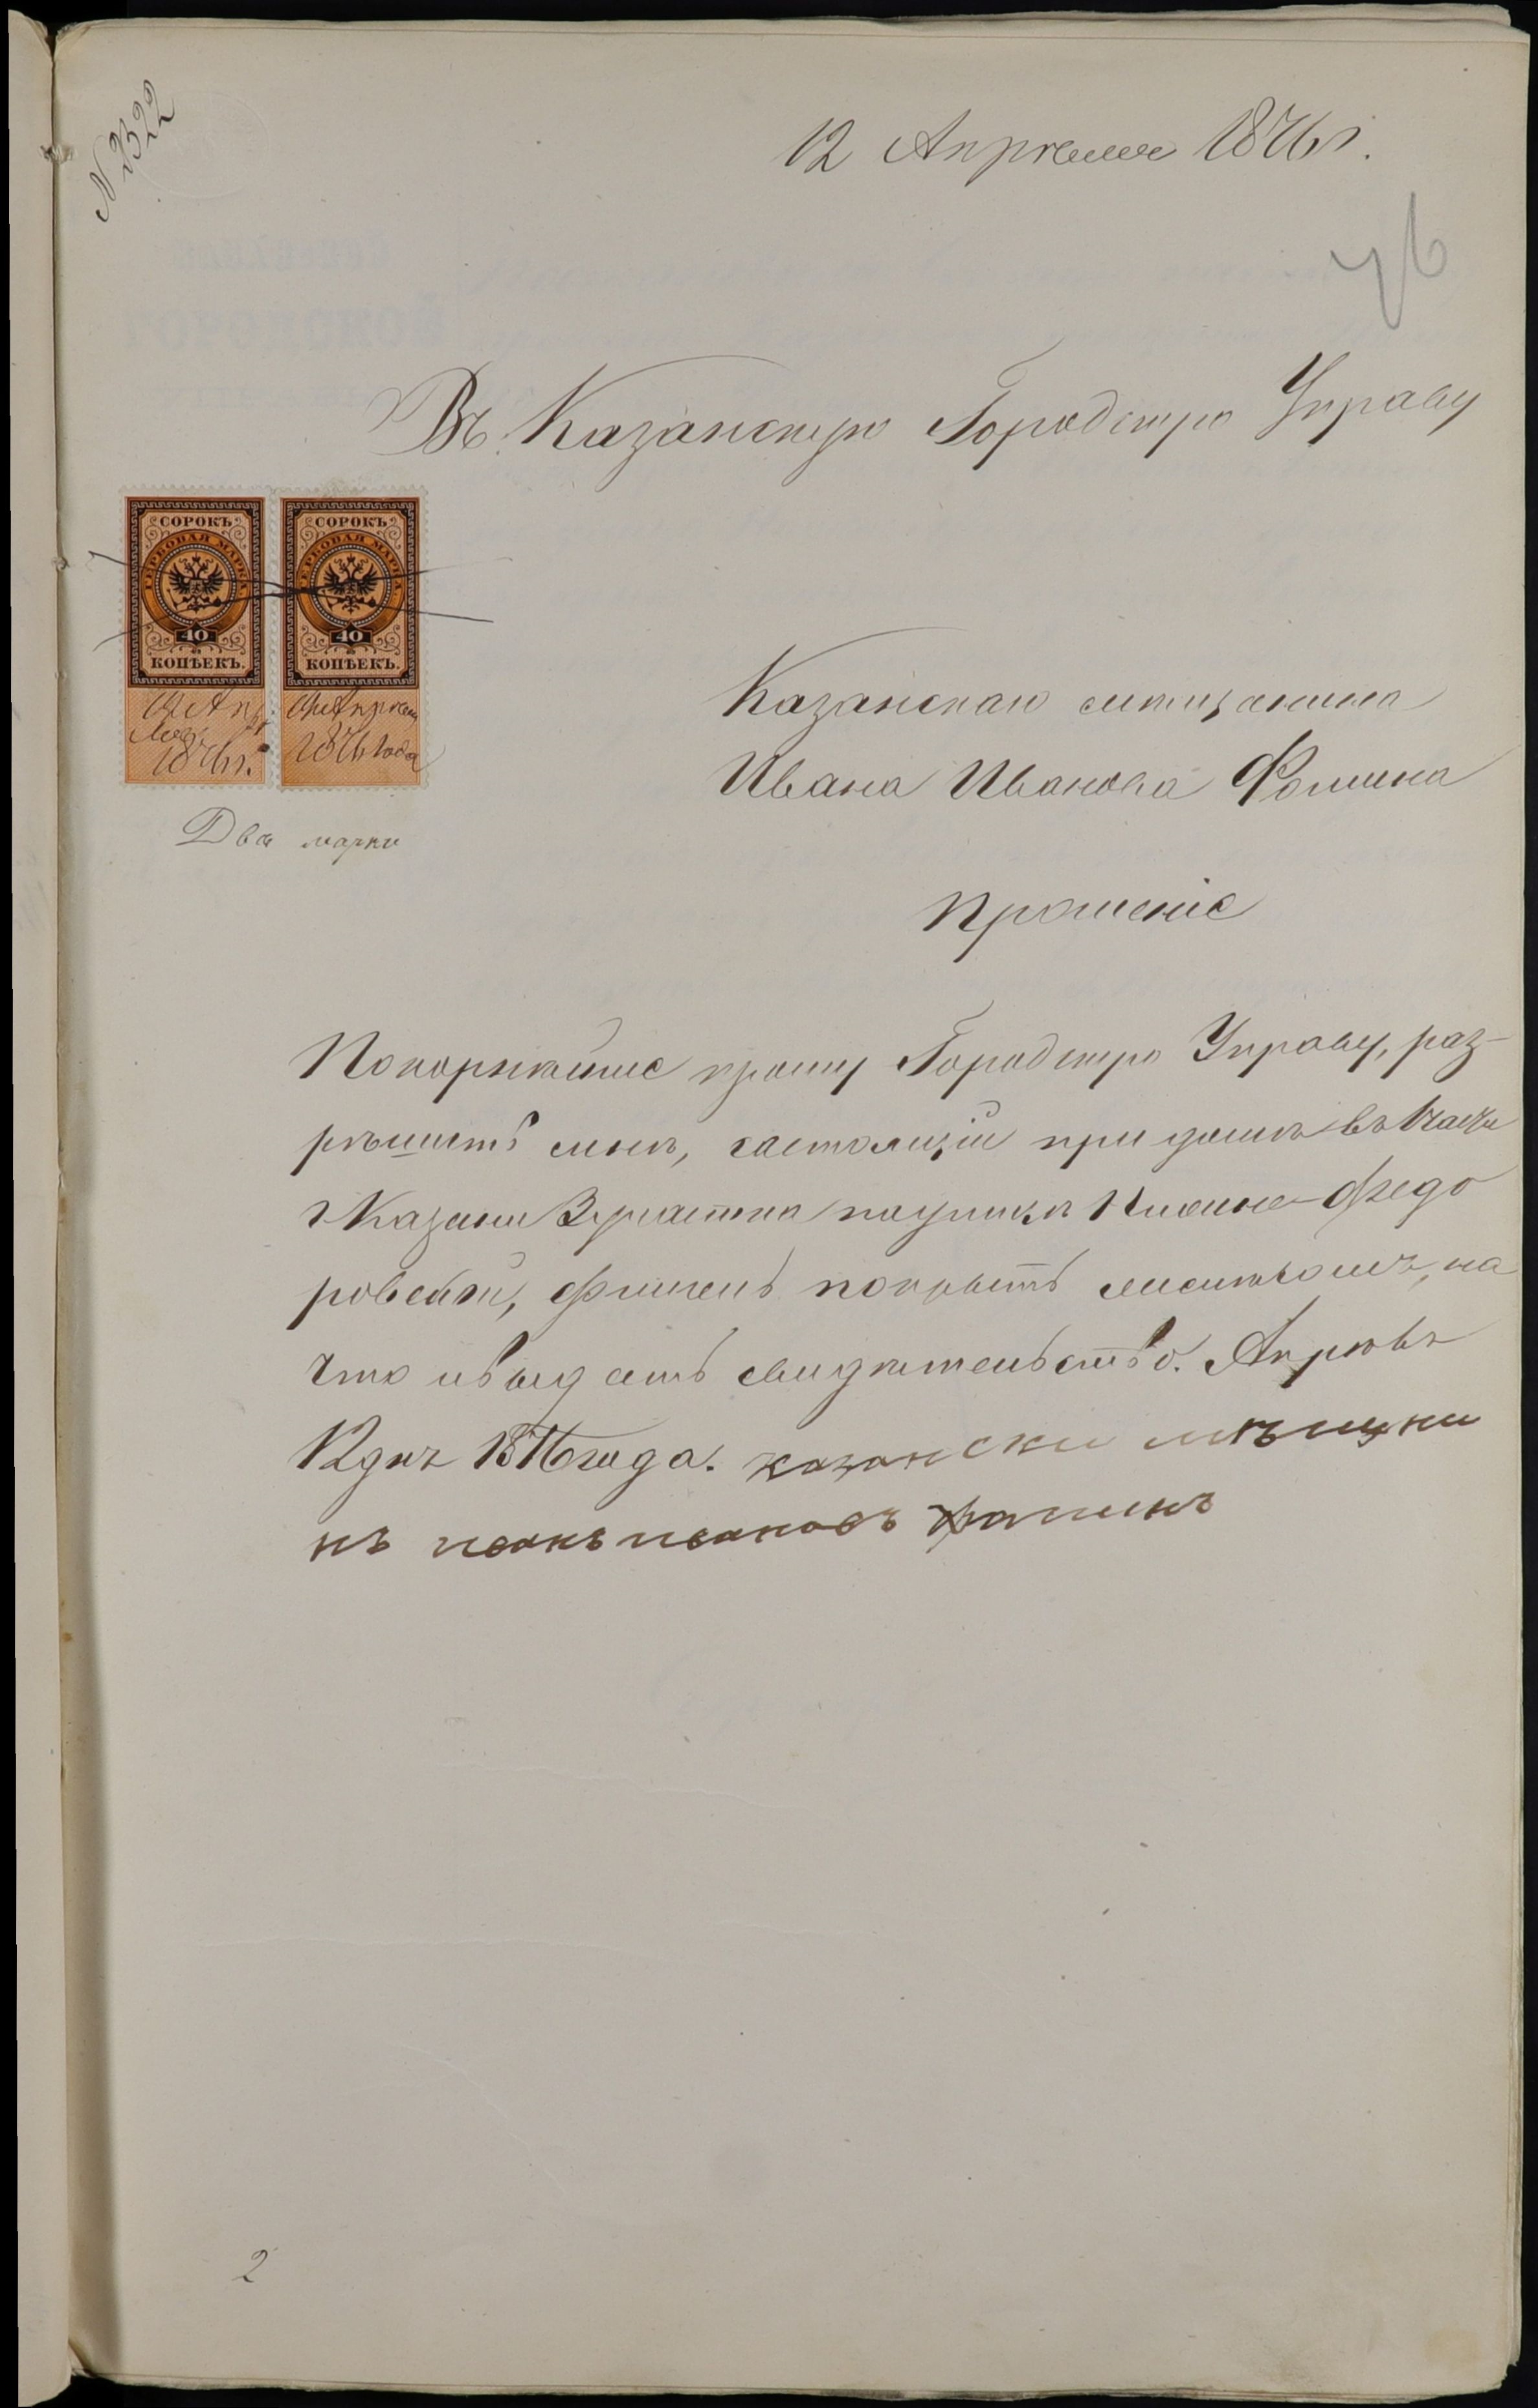 N 2322
12 Апрѣля 1876 г.
Въ Казанскую Городскую Управу
СОРОКЪ
ГЕРБОВАЯ МАРКА
40
КОПѢЕКЪ.
12 Апрѣ
ля
1876 г.
СОРОКЪ
ГЕРБОВАЯ МАРКА
40
КОПѢЕКЪ.
12 Апрѣля
1876 года
Двѣ марки
Казанскаго мѣщанина
Ивана Иванова Фомина
Прошеніе
Покорнѣйше прошу Городскую Управу, раз-
рѣшить мнѣ, состоящій при домѣ въ 1 части
г Казани 3 участка по улицѣ Нижне-Федо
ровской, флигель покрыть желѣзомъ, на
что и выдать свидѣтельство. Апрѣля
12 дня 1876 года. казански мѣщани
нъ иванъ ивановъ фаминъ
2